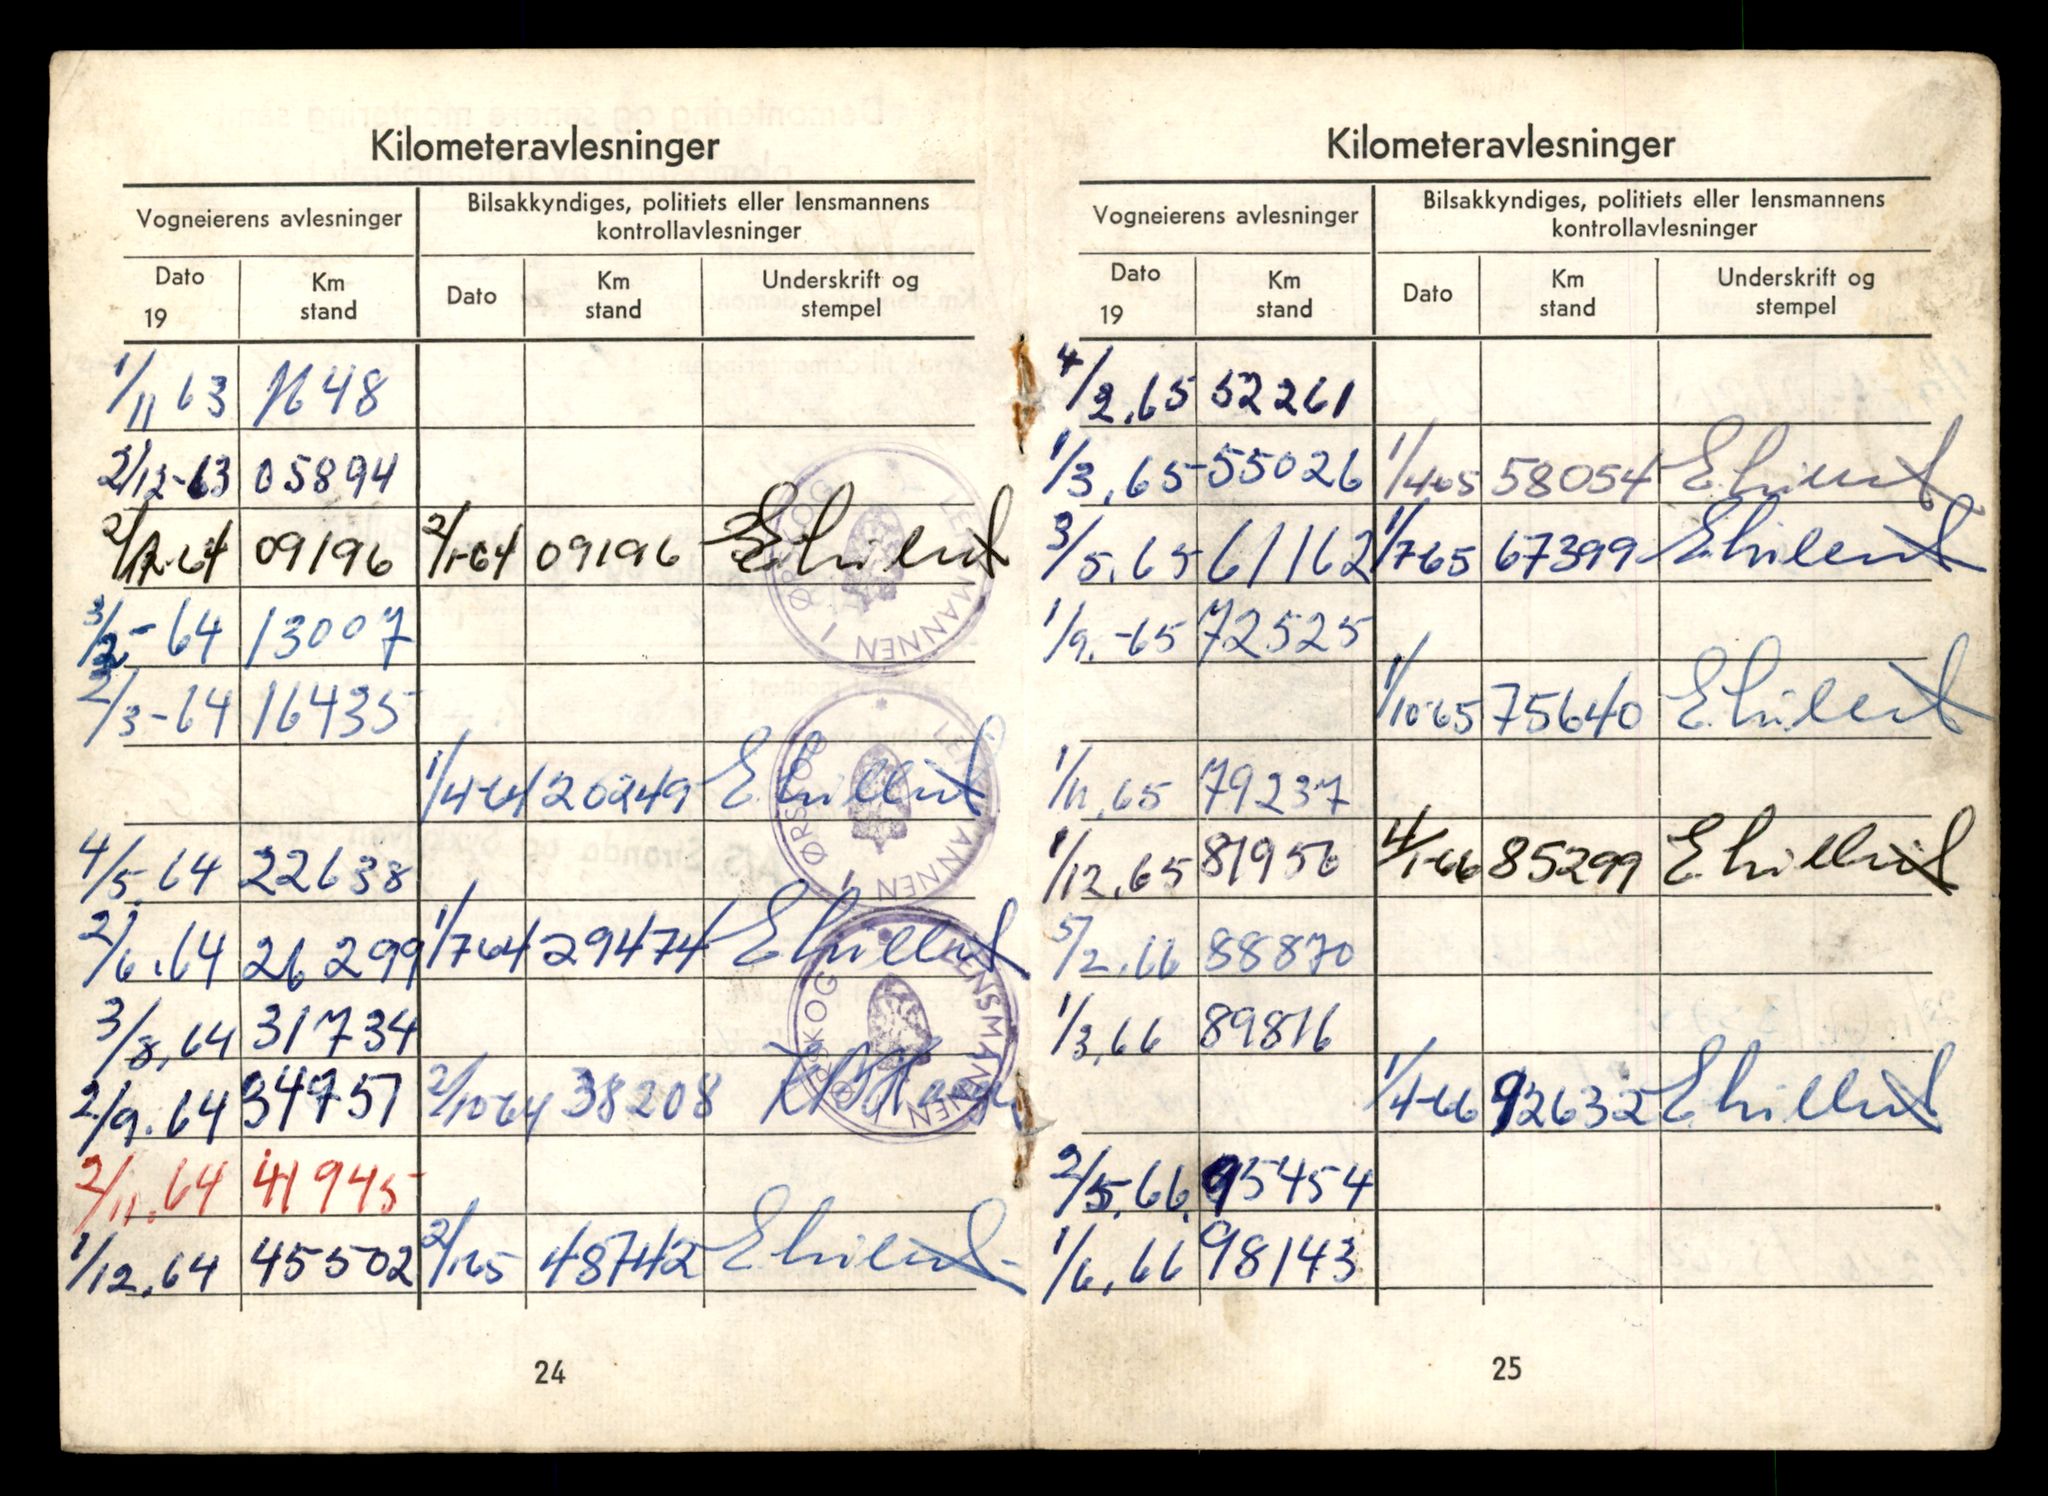 Kilometeravlesninger
Vogneierens avlesninger
Bilsakkyndiges, politiets eller lensmannens kontrollavlesninger
Dato 19
Km stand
Dato
Km stand
Underskrift og stempel
1/11 63 1648
2/12-63 05894
09196 2/1-64 09196
3/2-64 13007
2/3-64 16435
1/4-64 20249
4/5.64 22638
2/6.64 26299 1/7-64 29474
3/8.64 31734
2/9.64 34751 2/10-64 38208
2/11.64 41945
1/12.64 45502 2/1-65 48742
LENSMANNEN I ØRSKOG
LENSMANNEN I ØRSKOG
LENSMANNEN I ØRSKOG
24
Kilometeravlesninger
Vogneierens avlesninger
Bilsakkyndiges, politiets eller lensmannens kontrollavlesninger
Dato 19
Km stand
Dato
Km stand
Underskrift og stempel
4/2.65 52261
1/3.65 55026 1/4-65 58054
3/5.65 61162 1/7-65 67399
1/9.-65 72525
1/10-65 75640
1/11.65 79237
1/12.65 81956 4/1-66 85299
5/2.66 88870
1/3.66 89816
1/4-66 92632
2/5.66. 95454
1/6.66 98143
25